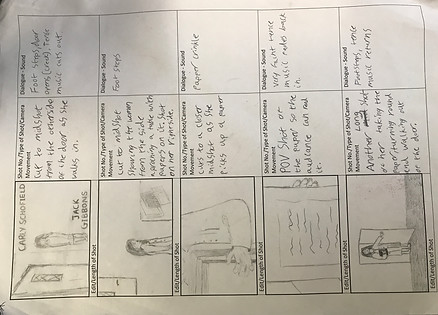 CARLY SCHOFIELD
JACK
GIBBONS
Edit/Length of Shot
Shot No./Type of Shot/Camera
Movement
Cut to midshot
from the otherside
of the door as she
walks in.
Dialogue - Sound
Foot steps, door
opens (creak). Tense
music cuts out.
Edit/Length of Shot
Shot No./Type of Shot/Camera
Movement
Cut to midshot
showing the women
from the side
opening a table with
papers on it. Shot
on her rightside.
Dialogue - Sound
Foot steps
Edit/Length of Shot
Shot No./Type of Shot/Camera
Movement
Cuts to a closer
midshot as she
picks up a paper
Dialogue - Sound
Papper crinkle
Edit/Length of Shot
Shot No./Type of Shot/Camera
Movement
POV Shot of
the paper so the
audiance can read
it.
Dialogue - Sound
Very faint tence
music fades back
in.
Edit/Length of Shot
Shot No./Type of Shot/Camera
Movement
Long Shot
Another
of her taking the
paper, turning round
and walking out
of the door.
Dialogue - Sound
Footsteps, tence
music returns